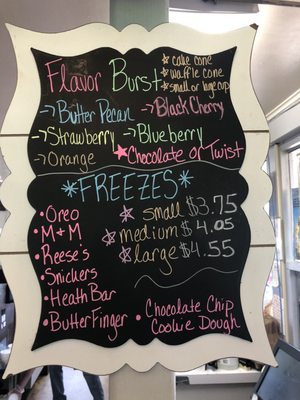 Flavor Burst
☆ cake cone
☆ waffle cone
☆ small or large cup
→ Butter Pecan
→ Black Cherry
→ Strawberry
→ Blueberry
→ Orange
★ Chocolate or Twist
*FREEZES*
• Oreo
• M&M
• Reese's
• Snickers
• Heath Bar
• ButterFinger
☆ small $3.75
☆ medium $4.05
☆ large $4.55
• Chocolate Chip
Cookie Dough